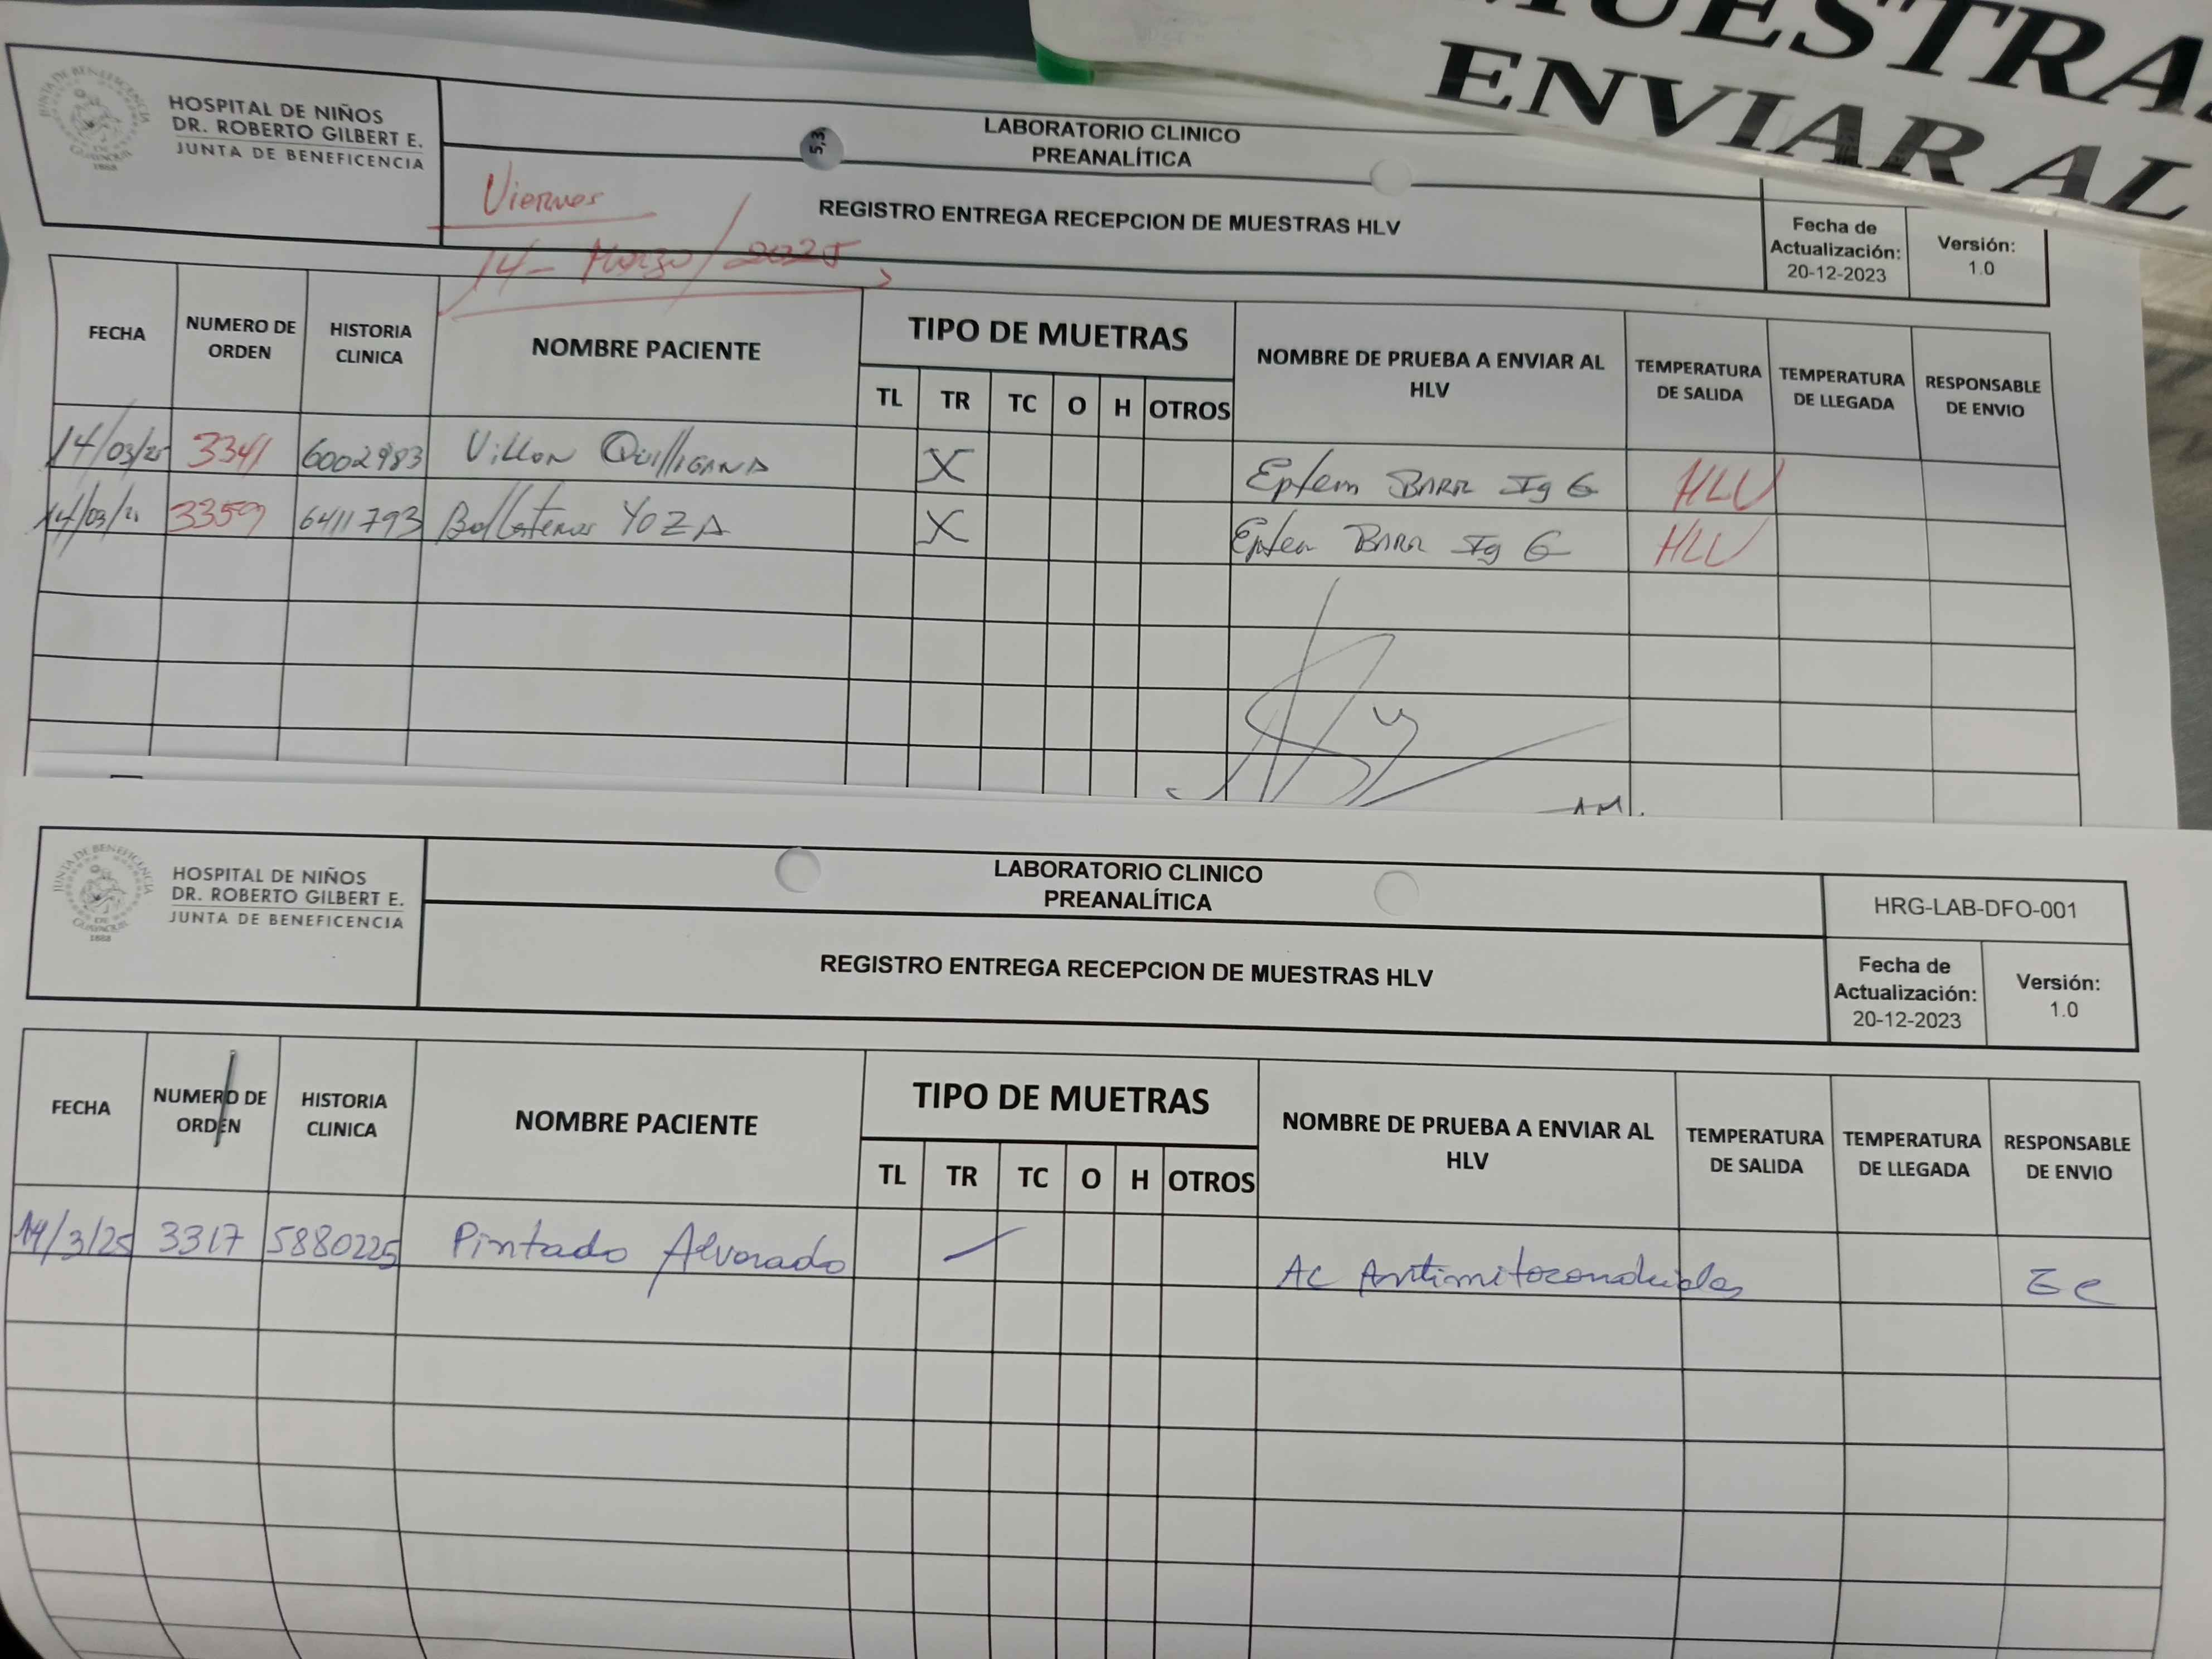 MUESTRAS
ENVIAR AL
JUNTA DE BENEFICENCIA
DE
GUAYAQUIL
1888
HOSPITAL DE NIÑOS
DR. ROBERTO GILBERT E.
JUNTA DE BENEFICENCIA
5,3
LABORATORIO CLINICO
PREANALÍTICA
Viernes
14- Marzo/2025
REGISTRO ENTREGA RECEPCION DE MUESTRAS HLV
Fecha de
Actualización:
20-12-2023
Versión:
1.0
FECHA NUMERO DE ORDEN HISTORIA CLINICA NOMBRE PACIENTE TIPO DE MUETRAS NOMBRE DE PRUEBA A ENVIAR AL HLV TEMPERATURA DE SALIDA TEMPERATURA DE LLEGADA RESPONSABLE DE ENVIO
TL TR TC O H OTROS
14/03/25 3341 6002983 Villon Quilligana X Eptem BARR Ig G HLV
14/03/2 3359 6411793 YOZA X Epten BARR Ig G HLV
JUNTA DE BENEFICENCIA
DE
GUAYAQUIL
1888
HOSPITAL DE NIÑOS
DR. ROBERTO GILBERT E.
JUNTA DE BENEFICENCIA
LABORATORIO CLINICO
PREANALÍTICA
REGISTRO ENTREGA RECEPCION DE MUESTRAS HLV
HRG-LAB-DFO-001
Fecha de
Actualización:
20-12-2023
Versión:
1.0
FECHA NUMERO DE ORDEN HISTORIA CLINICA NOMBRE PACIENTE TIPO DE MUETRAS NOMBRE DE PRUEBA A ENVIAR AL HLV TEMPERATURA DE SALIDA TEMPERATURA DE LLEGADA RESPONSABLE DE ENVIO
TL TR TC O H OTROS
14/3/25 3317 5880225 Pintado Alvarado AC Antimitocondriales